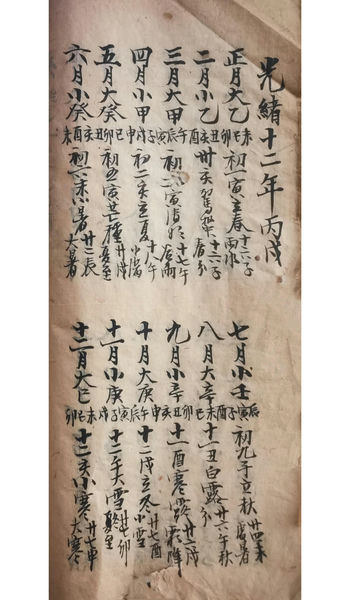 光緒十二年丙戌
正月大乙未巳卯初一寅立春十六子雨水
二月小乙丑亥酉卅亥驚蟄十六子春分
三月大甲午辰寅初二寅清明十七午谷雨
四月小甲子戌申初二亥立夏十八午小滿
五月大癸巳卯丑初五寅芒種廿戌夏至
六月小癸亥酉未初六未小暑廿二辰大暑
七月小壬辰寅子初九子立秋廿四未處暑
八月大辛酉未巳十一丑白露廿六午秋分
九月小辛卯丑亥十一酉寒露戌霜降
十月大庚申午辰十二戌立冬廿七酉小雪
十一月小庚寅子戌十二午大雪廿七卯冬至
十二月大己未巳卯十二亥小寒廿七申大寒